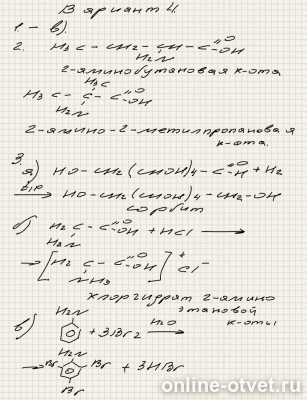 Вариант 4.
1. – в).
2. H₃C – CH₂ – CH – C =O –OH
H₂N
2-аминобутановая к-ота
H₃C
H₃C – C – C =O –OH
H₂N
2-амино-2-метилпропановая
к-ота.
3.
а) HO – CH₂ (CHOH)₄ – C =O –H + H₂
t, p → HO – CH₂ (CHOH)₄ – CH₂ – OH
сорбит
б) H₂C – C =O –OH + HCl →
H₂N
→ [H₂C – C =O –OH]⁺ Cl⁻
NH₃
хлоргидрат 2-амино
этановой
к-оты
H₂N
в) + 3Br₂ H₂O →
H₂N
→ Br Br + 3HBr
Br
online-otvet.ru